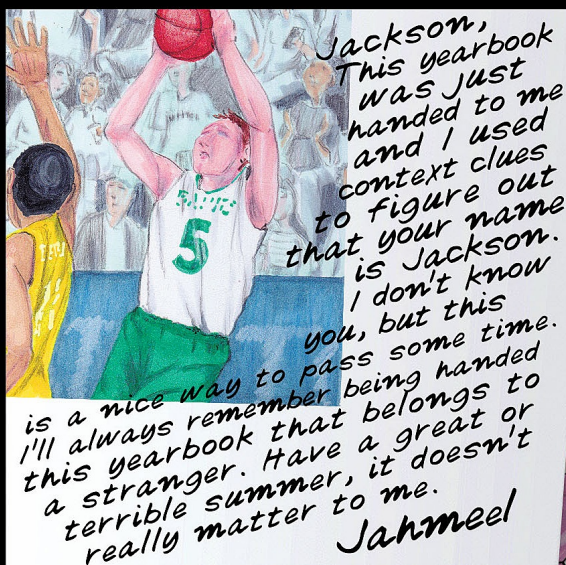 Jackson,
This yearbook
was just
handed to me
and I used
context clues
to figure out
that your name
is Jackson.
I don't know
you, but this
is a nice way to pass some time.
I'll always remember being handed
this yearbook that belongs to
a stranger. Have a great or
terrible summer, it doesn't
really matter to me.
Jahmeel
5